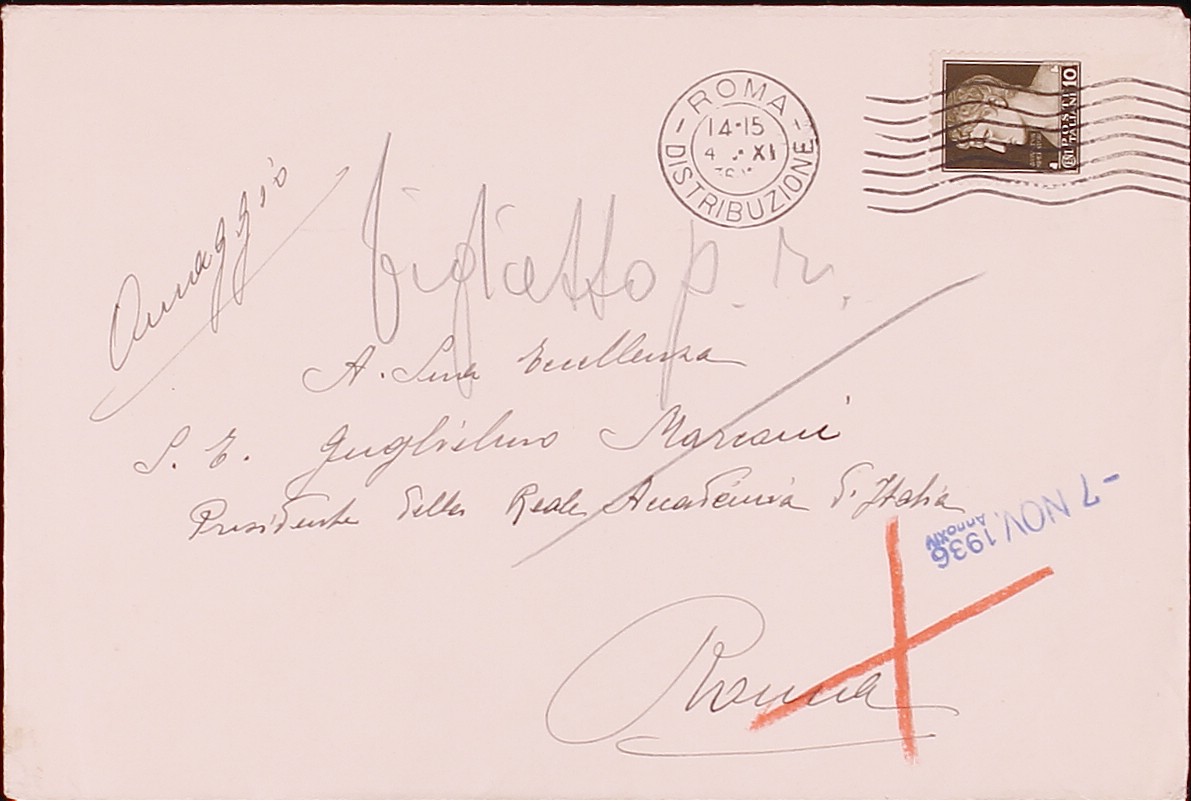 ROMA
14-15
4 XI
DISTRIBUZIONE
10
POSTE
ITALIANE
Omaggio
biglietto p. r.
A. Sua Eccellenza
S. E. Guglielmo Marconi
Presidente della Reale Accademia d'Italia
-7 NOV. 1936
Anno XIV
Roma